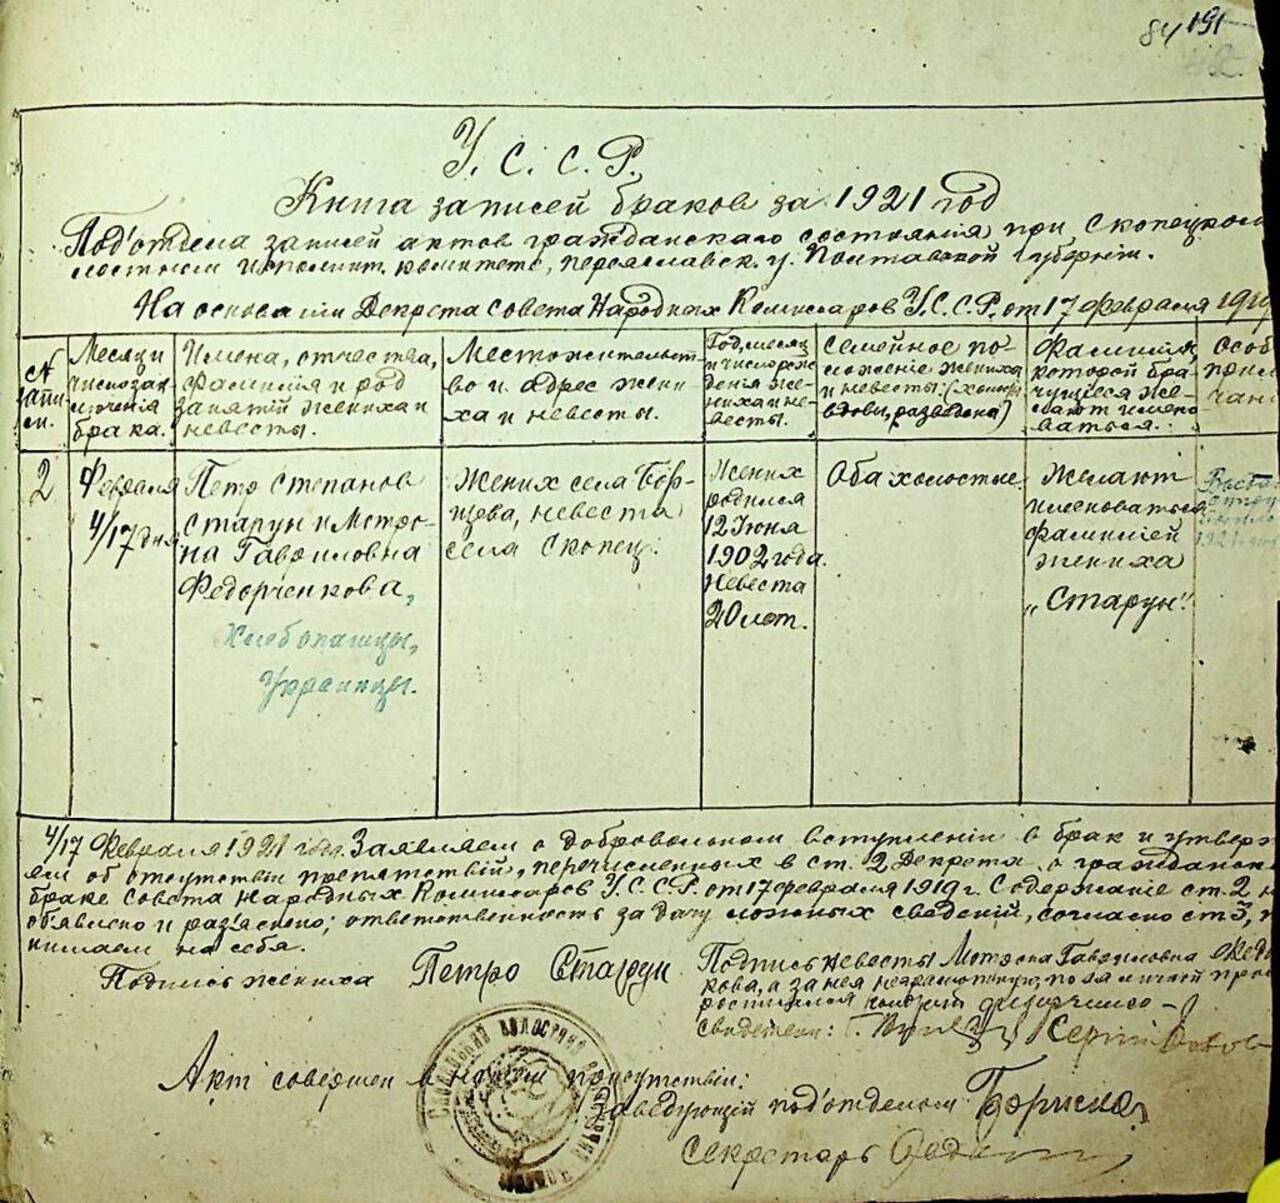 84 191
У. С. С. Р.
Книга записей браков за 1921 год
Под'отдела записей актов гражданскаго состояния при Скопецком
лостном исполнит. комитете, переяславск. у. Полтавской Губернии.
На основании Декрета Совета Народных Комиссаров У.С.С.Р. от 17 февраля 1919
№ запи-си.
Месяц и число заключения брака.
Имена, отчества,
фамилия и род
занятій жениха и
невесты.
Местожительст-
во и адрес жени-
ха и невесты.
Год, месяц
и число рож-
дения же-
ниха и не-
весты.
Семейное по-
ложение жениха
и невесты: (холост
вдовы, разведена)
Фамилия,
которой бра-
чущиеся же-
лают имено-
ваться.
Особ
прим
чан
2
Февраля
4/17 дня
Петр Степанов
Старун и Мотро-
на Гавриловна
Федорченкова,
Хлебопашцы,
Украинцы.
Жених села Бор-
щева, невеста
села Скопец.
Жених
родился
12 Июня
1902 года.
Невеста
20 лет.
Оба холостые.
Желают
именоваться
фамилией
жениха
„Старун".
4/17 Февраля 1921 года. Заявляем о добровольном вступлении в брак и утверж
ем об отсутствии препятствий, перечисленных в ст. 2 Декрета о гражданск
браке Совета Народных Комиссаров У.С.С.Р. от 17 февраля 1919 г. Содержание ст. 2 н
об'явлено и раз'яснено; ответственность за дачу ложных сведений, согласно ст 3, п
нимаем на себя.
Подпись жениха Петро Старун
Подпись невесты Мотрона Гавриловна Федо
кова, а за нея неграмотную, по ея личной про
росписался
Свидетели: Сергій
Акт совершен в нашем присутствии:
Заведующій под'отделом Бориско
Секретарь